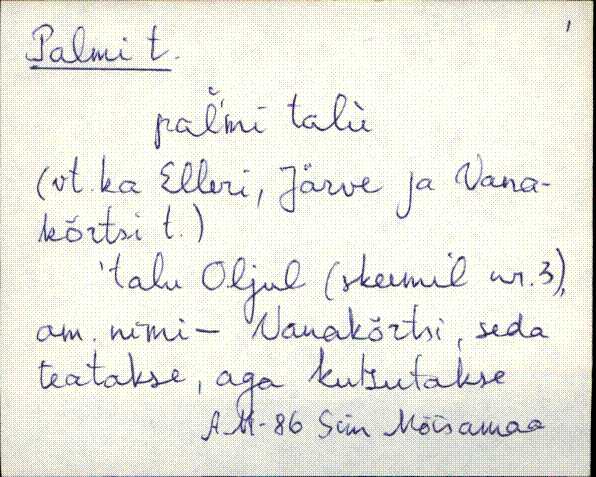 1
Palmi t.
pal̆'mi talù
(vt. ka Elleri, Järve ja Vana-
kõrtsi t.)
'talu Oljul (skeemil nr. 3),
am. nimi - Vanakõrtsi, seda
teatakse, aga kutsutakse
AM-86 Sim Mõisamaa